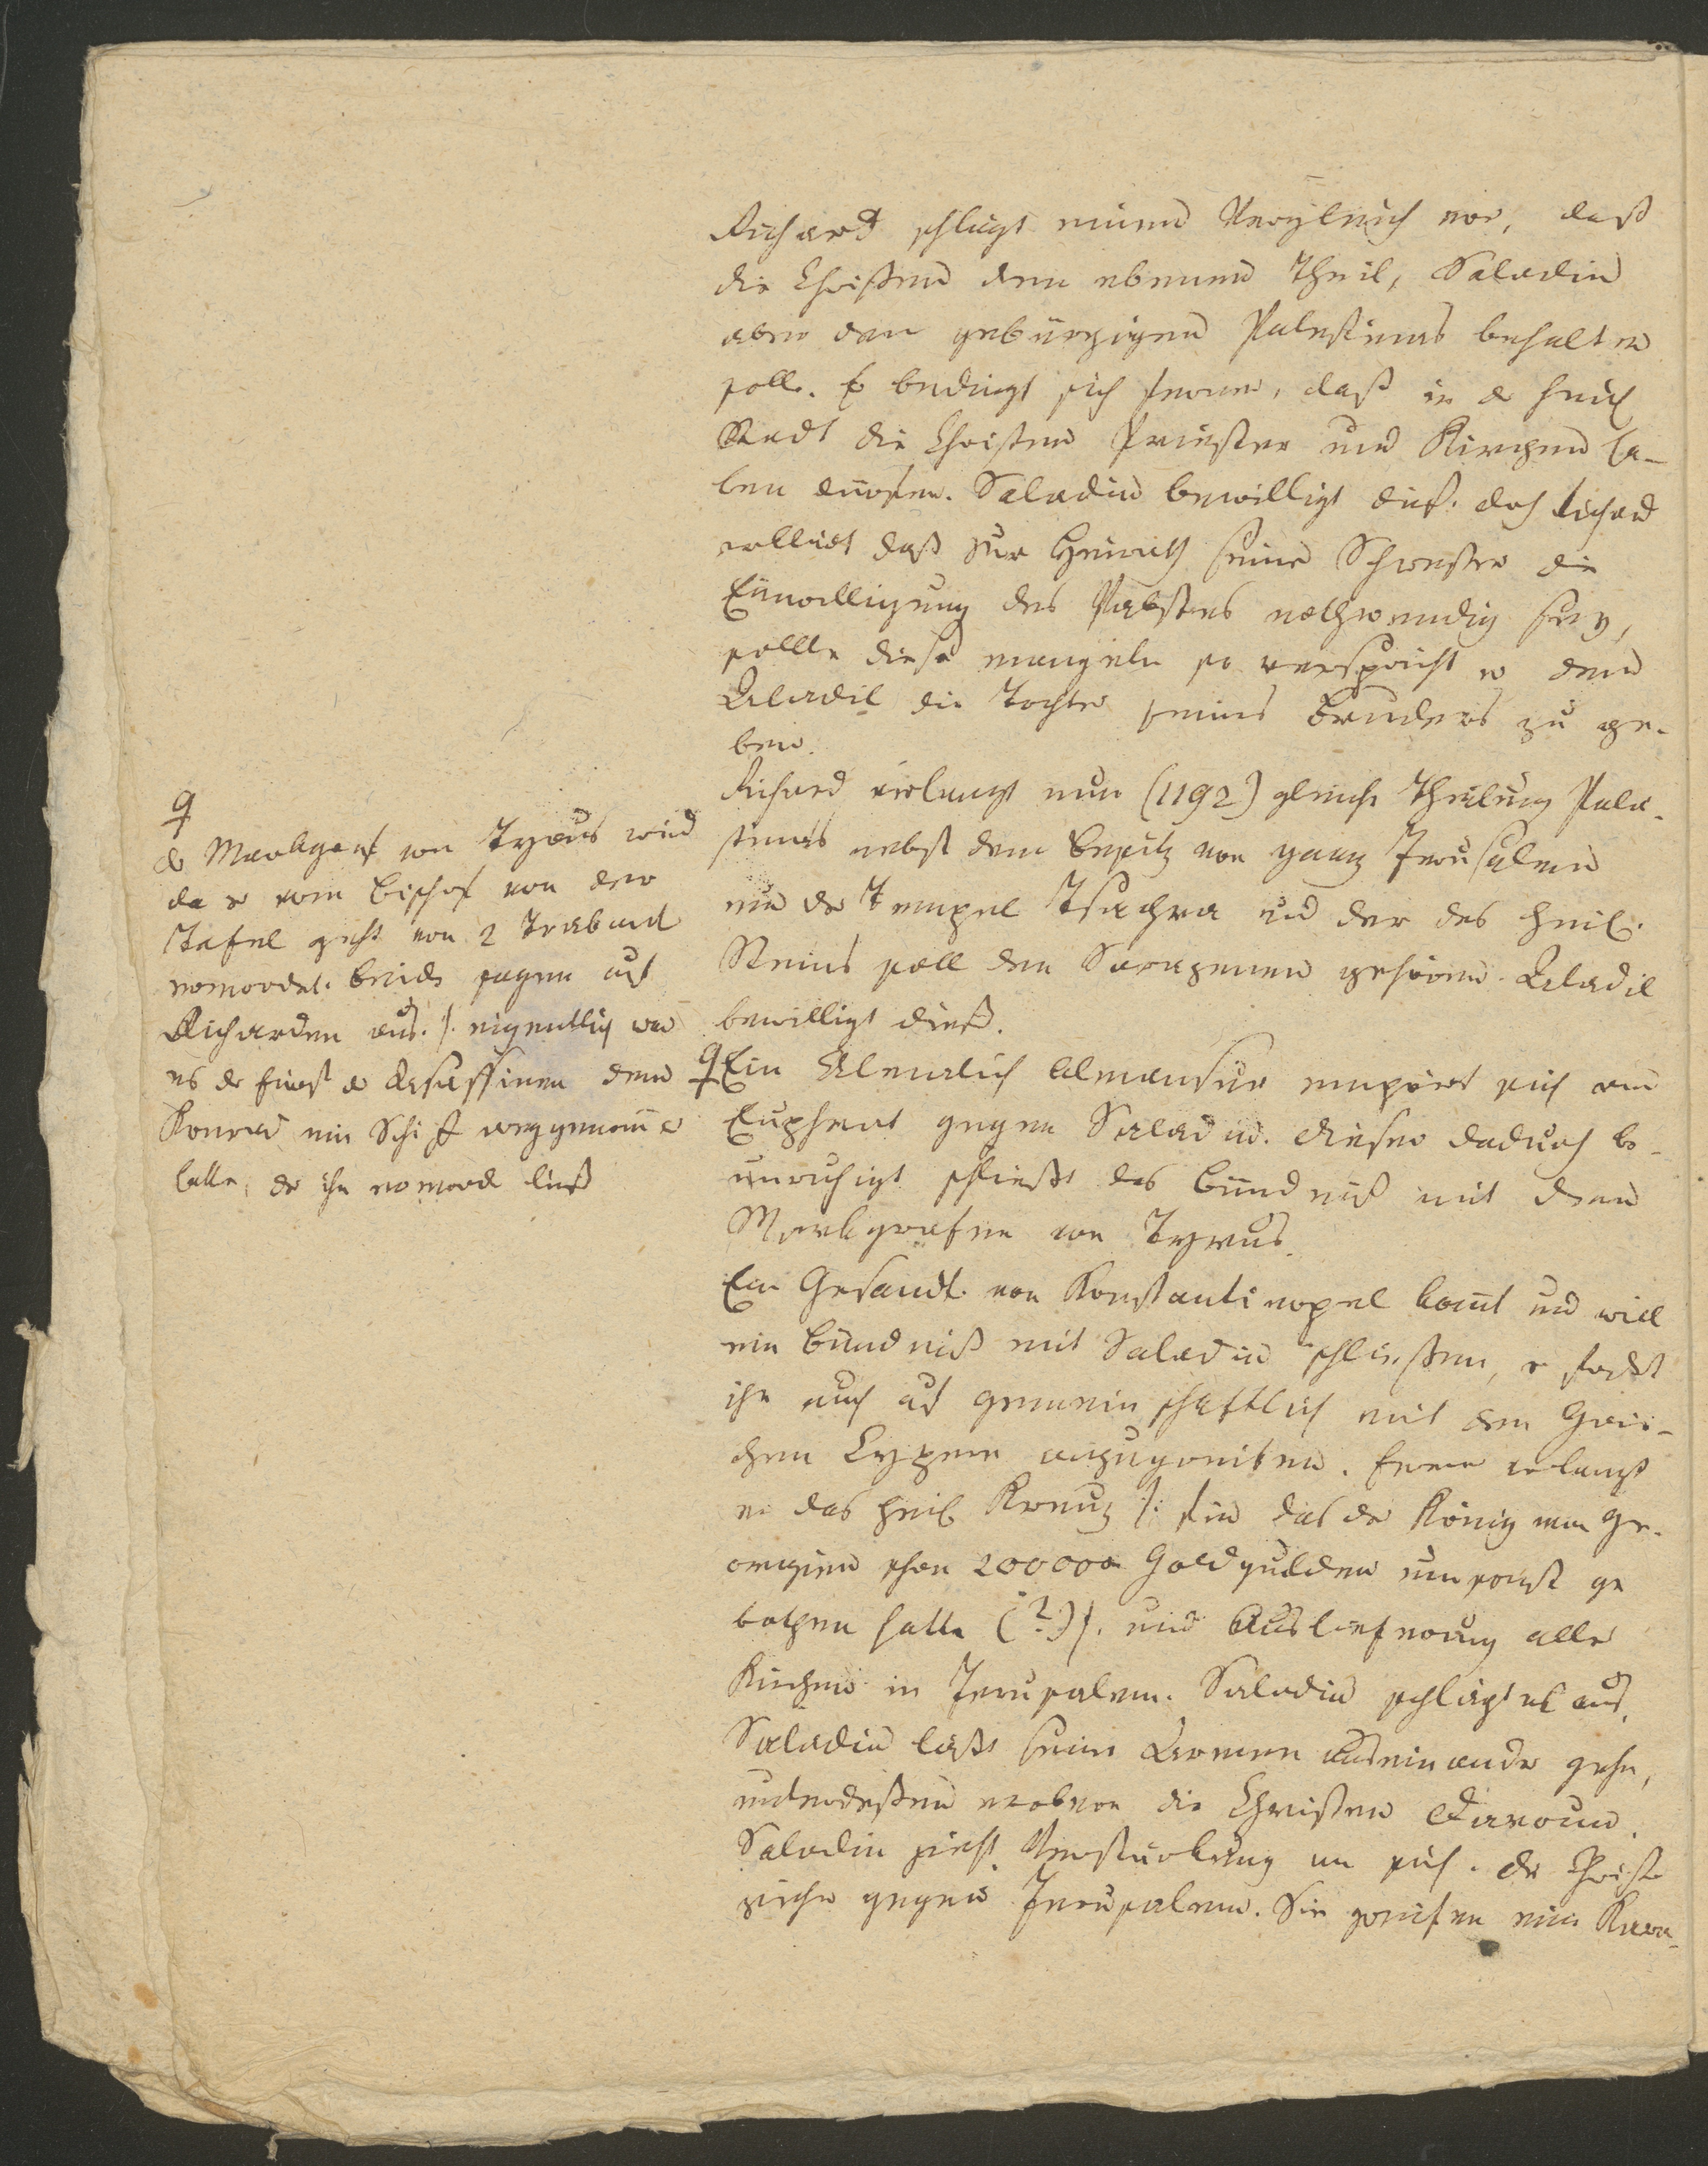 Richard schlägt einen Vergleich vor, daß
die Christen den ebenen Theil, Saladin
aber den gebürgigen Palestinas behalten
soll. Er bedingt sich ferner, daß in d heil
Stadt die Christen Priester und Kirchen ha-
ben dürfen. Saladin bewilligt dieß. doch Richard
erklärt daß zur Heirath seiner Schwester die
Einwilligung des Pabstes nothwendig sey,
sollte diese mangeln so verspricht er dem
Aladil die Tochter seines Bruders zu ge-
ben.
Richard verlangt nun (1192) gleiche Theilung Palä-
stinas nebst dem Besitz von ganz Jerusalem
nur der Tempel Tsachra und der des heil.
Steins soll den Sarazenen gehören. Aladil
bewilligt dieß.
♀ Ein Almalich Almansur empört sich am
Euphrat gegen Saladin. dieser dadurch be-
unruhigt schließt das Bündniß mit dem
Markgrafen von Tyrus.
Ein Gesandt. von Konstantinopel komt und will
ein Bündniß mit Saladin schließen, er fodert
ihn auch auf gemeinschaftlich mit den Grie-
chen Cypern anzugreifen. Ferner verlangt
er das heil Kreuz /: für das der König von Ge-
orgien schon 200000 Goldgulden umsonst ge
bothen hatte (?) /. und Auslieferung aller
Kirchen in Jerusalem. Saladin schlägt es aus.
Saladin läßt seine Armeen auseinander gehn,
unterdeßen erobern die Christen Daroum.
Saladin zieht Verstärkung an sich. die Christen
ziehn gegen Jerusalem. Sie greifen eine Kara-
♀
d Markgraf von Tyrus wird
da er vom Bischof von der
Tafel geht von 2 Traband
ermordet. beide sagen auf
Richarden aus. /. eigentlich war
es der Fürst d Assassinen dem
Konrad ein Schiff weggenomen
hatte, der ihn ermord ließ